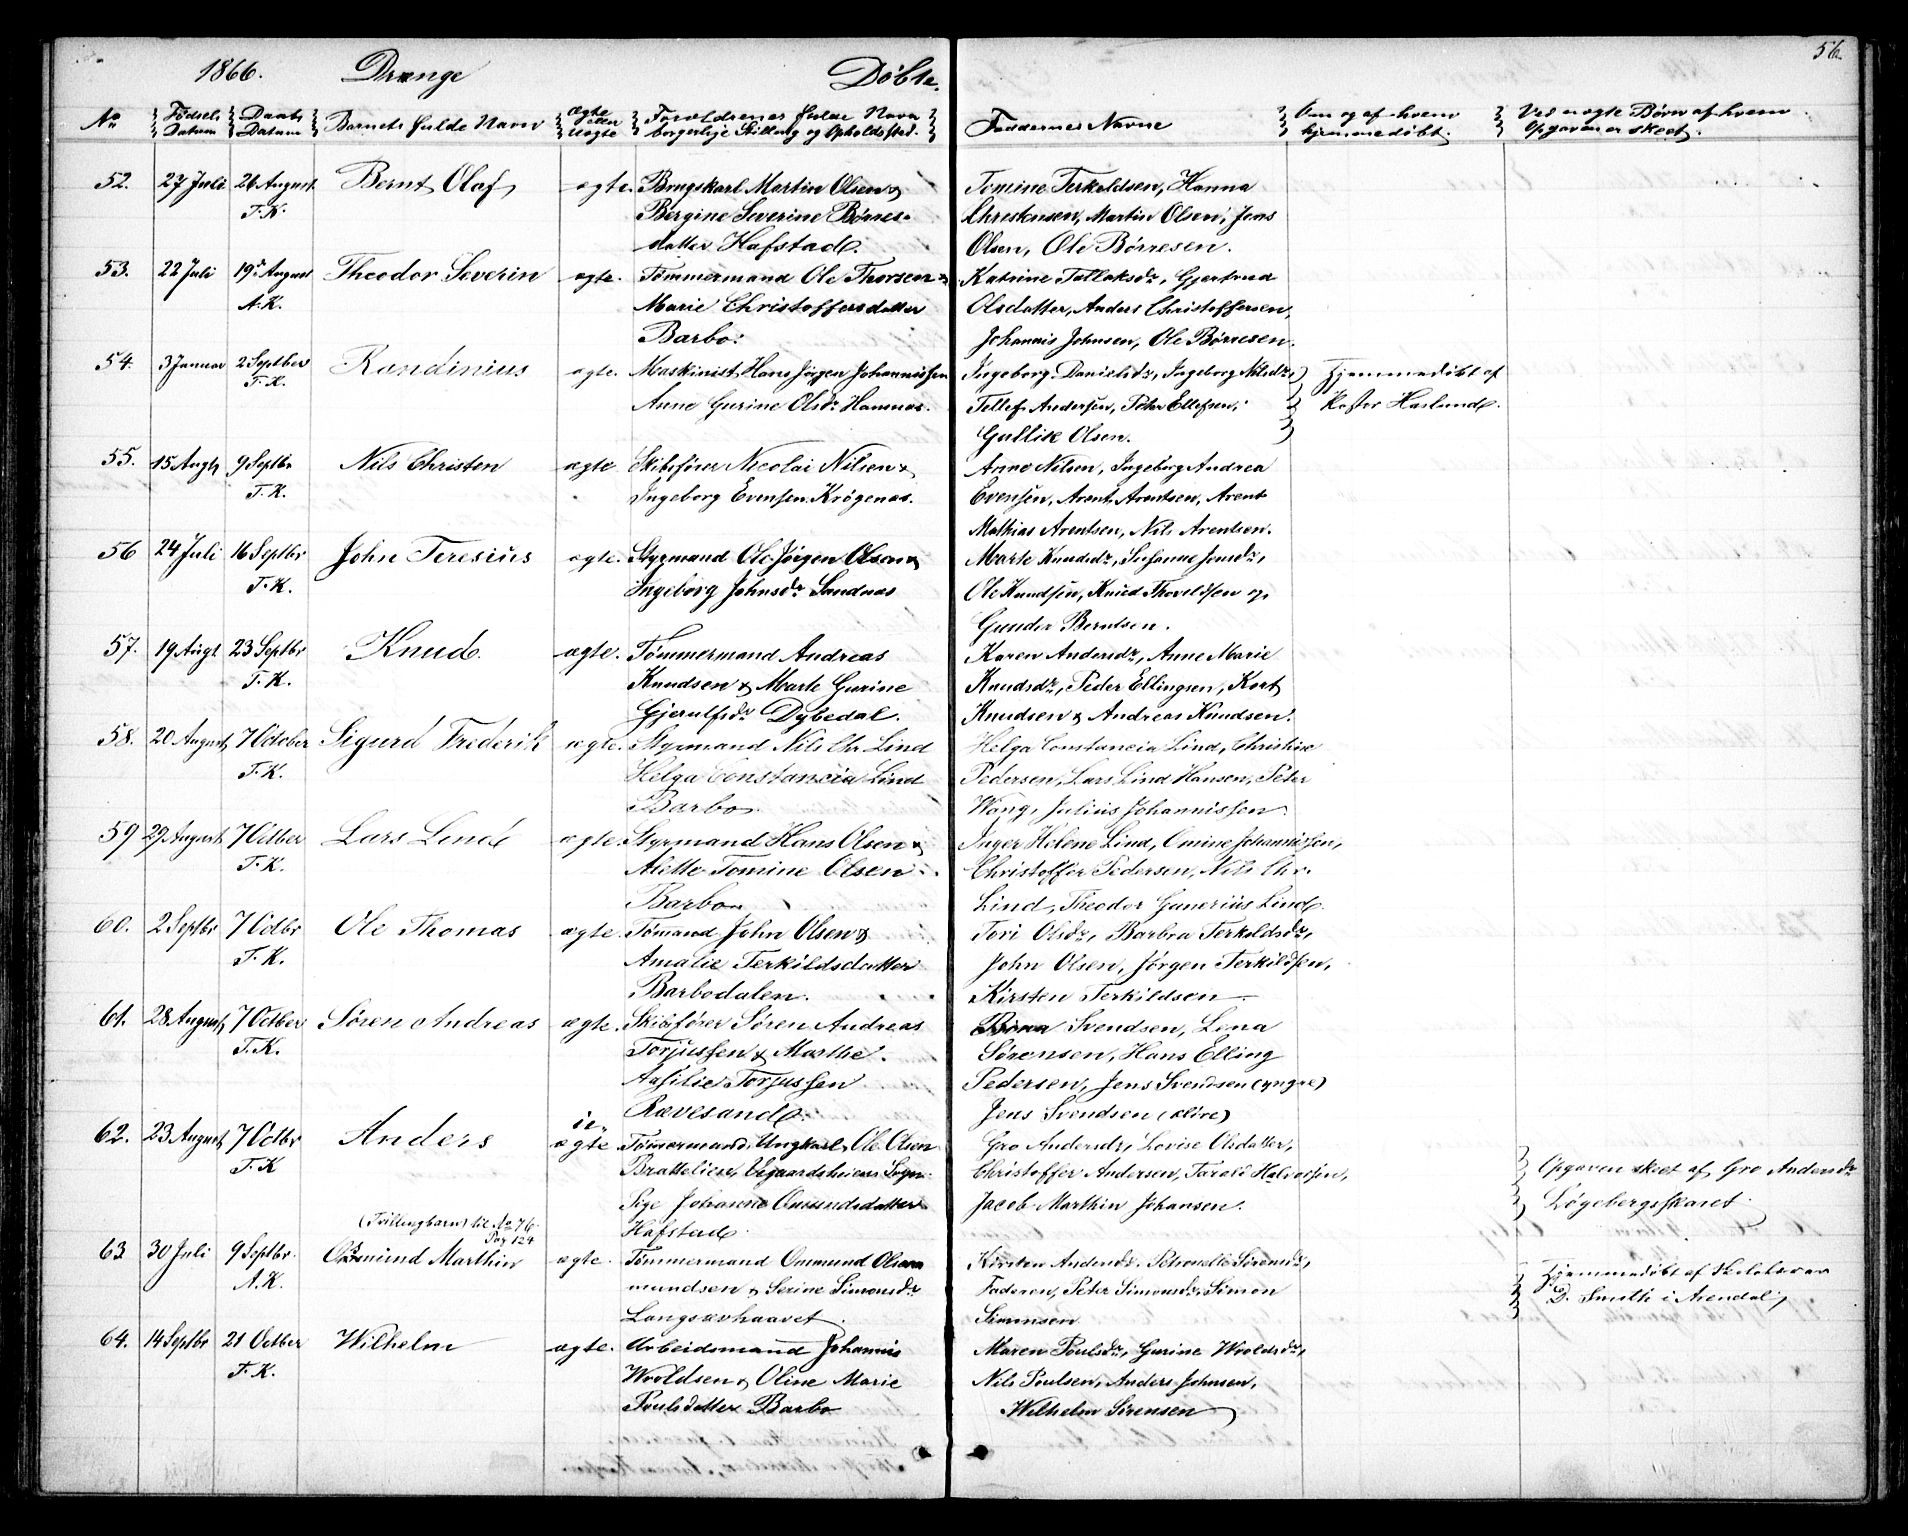 56.
1866. Drenge Døbte.
No Fødsels Datum Daabs Datum Barnets fulde Navn ægte eller uægte Forældrenes fulde Navn borgerlige Stilling og Opholdssted. Faddernes Navne Om og af hvem hjemmedøbt. Ved uægte Børn af hvem Opgaven er skeet.
52. 27 Juli 26 August Bernt Olaf ægte. Brugskarl Martin Olsen & Tomine Terkeldsen, Hanna
T.K. Bergine Severine Børres- Christensen, Martin Olsen, Jens
datter Hafstad. Olsen, Ole Børresen.
53. 22 Juli 19 August Theodor Severin ægte. Tømmermand Ole Thorsen & Katrine Tellaksdr, Gjertrud
A.K. Marie Christoffersdatter Olsdatter, Anders Christoffersen,
Barbo. Johannis Johnsen, Ole Børresen.
54. 3 Januar 2 Septber Randinius ægte. Maskinist Hans Jørgen Johannissen Ingeborg Danielsdr, Ingeborg Nilsdr, Hjemmedøbt af
T.K. Anne Gurine Olsdr Tellef Andersen, Peter Ellefsen, Kofter Haslund.
Gullik Olsen.
55. 15 Augt 9 Septbr Nils Christen ægte Skibsfører Nicolai Nilsen & Anne Nilsen, Ingeborg Andrea
T.K. Ingeborg Evensen Krøgenæs. Evensen, Arent Arentsen, Arent
Mathias Arentsen, Nils Arentsen.
56 24 Juli 16 Septbr John Teresius ægte. Styrmand Ole Jørgen Olsen & Marte Knudsdr, Susanne Jonsdr,
T.K. Ingeborg Johnsdr Sandnæs Ole Knudsen, Knud Thoreldsen og
Gunder Berntsen.
57. 19 Augt 23 Septbr Knud. ægte. Tømmermand Andreas Karen Andersdr, Anne Marie
T.K. Knudsen & Marte Gurine Knudsdr, Peder Ellingsen, Kort
Gjerulfsdr Dybedal. Knudsen & Andreas Knudsen.
58. 20 August 7 October Sigurd Frederik ægte. Styrmand Nils Chr. Lind Helga Constancia Lind, Christine
T.K. Helga Constancia Lind Pedersen, Lars Lind Hansen, Peter
Barbo. Wang, Julius Johannissen.
59 29 August 7 Octber Lars Lind ægte. Styrmand Hans Olsen & Inger Helene Lind, Omine Johannissen,
T.K. Alette Tomine Olsen Christoffer Pedersen, Nils Chr.
Barbo Lind, Theodor Gunerius Lind.
60. 2 Septbr 7 Octbr Ole Thomas ægte. Tømmand John Olsen & Tori Olsdr, Barbra Terkeldsdr,
T.K. Amalie Terkildsdatter John Olsen, Jørgen Terkildsen,
Barbodalen. Kirsten Terkildsen
61. 28 August 7 Octber Søren Andreas ægte. Skibsfører Søren Andreas Svendsen, Lena
T.K. Torjussen & Marthe Sørensen, Hans Elling
Aasilie Torjussen Pedersen, Jens Svendsen (yngre)
Rævesand. Jens Svendsen (eldre)
62. 23 August 7 Octbr Anders u- ægte Tømmermand, Ungkarl, Ole Olsen Gro Andersdr, Lovise Olsdatter,
T.K Brattelien, Vegaardsheiens Sogn. Christoffer Andersen, Tarald Halvorsen, Opgaven skeet af Gro Andersdr
Pige Johanne Omundsdatter Jacob Marthin Johansen. Løgebergsskaret.
Hafstad.
(Tvillingbarn) til No 76. Pag 124
63. 30 Juli 9 Septbr. Osmund Marthin ægte. Tømmermand Ommund Kirsten Andersdr. Petronelle Sørensdr, Hjemmedøbt af Skolelærer
A.K. mundsen & Serine Simonsdr Faderen, Peter Simonsdr, Simon D. Smith i Arendal,
Langsævhaavet. Simonsen
64. 14 Septbr 21 Octber Wilhelm ægte. Arbeidsmand Johannis Maren Poulsdr, Gurine Wroldsdr,
T.K. Wroldsen & Oline Marie Nils Poulsen, Anders Johnsen,
Poulsdatter Barbo Wilhelm Sørensen